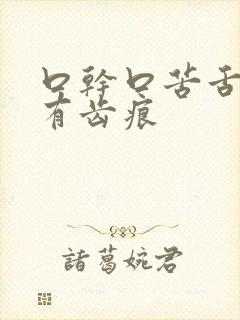 口幹口苦舌
有齿痕
諸葛婉君